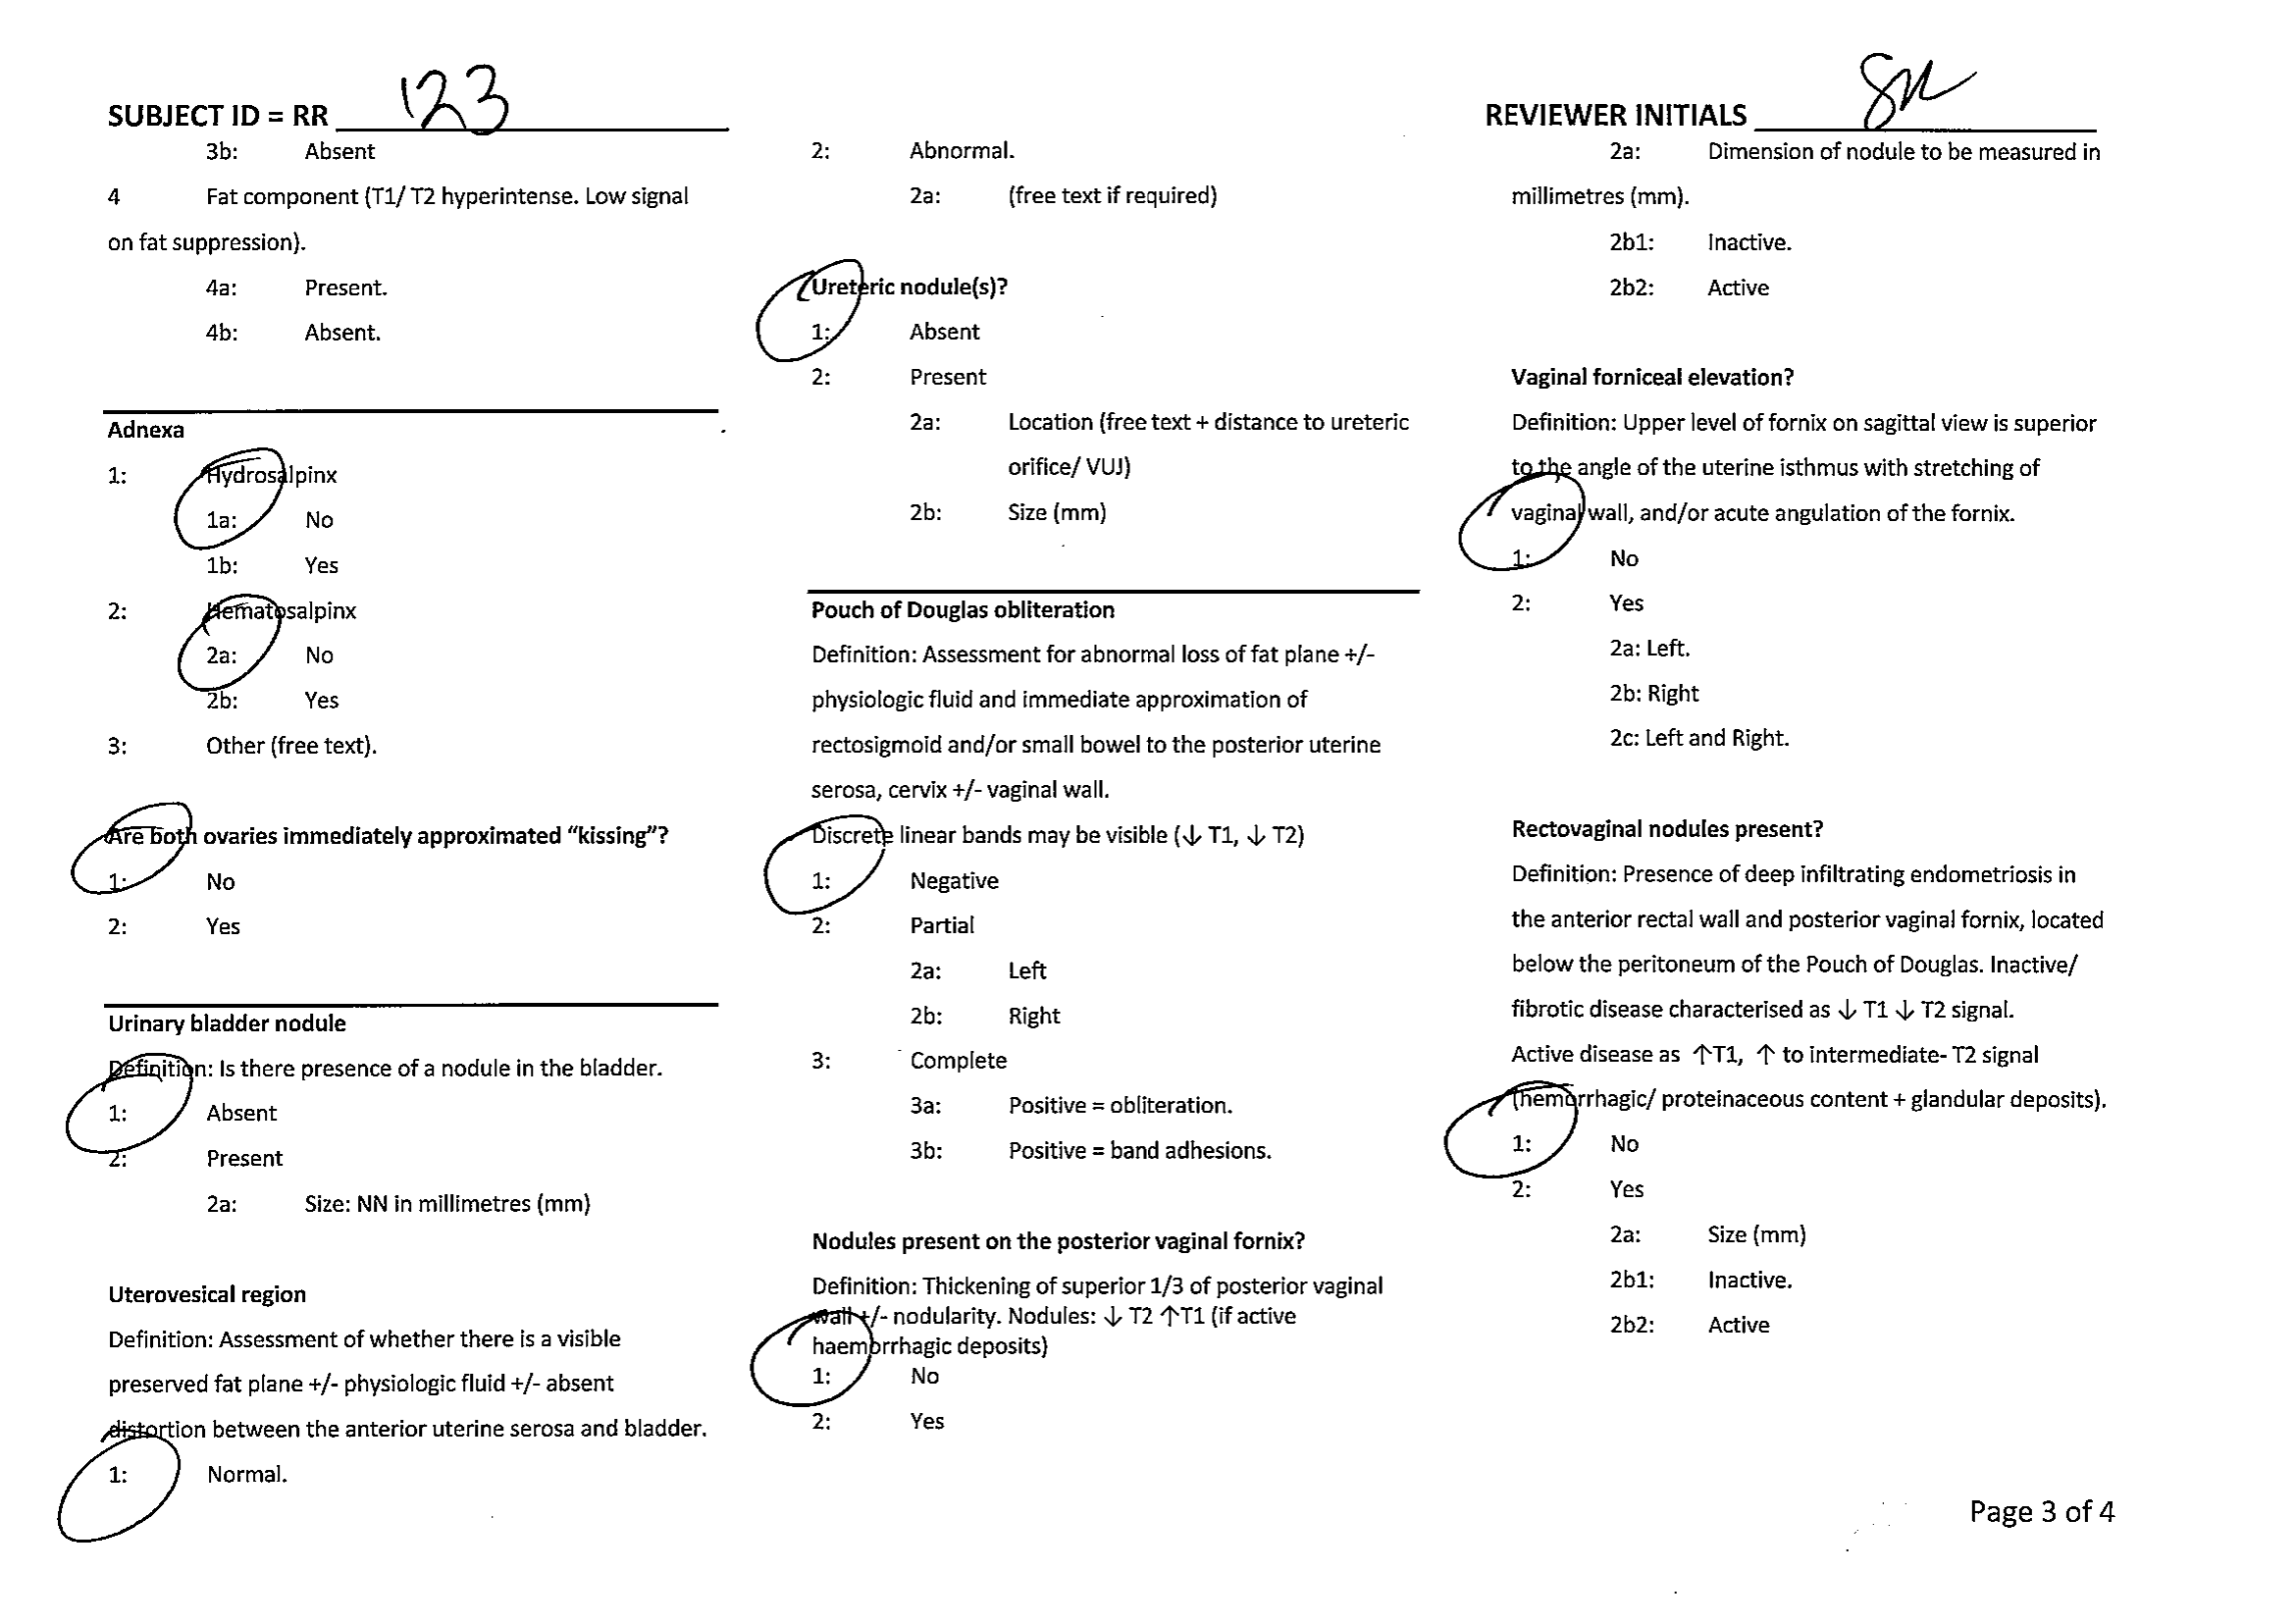 SUBJECT ID = RR 123
3b: Absent
4 Fat component (T1/ T2 hyperintense. Low signal
on fat suppression).
4a: Present.
4b: Absent.
Adnexa
1: Hydrosalpinx
1a: No
1b: Yes
2: Hematosalpinx
2a: No
2b: Yes
3: Other (free text).
Are both ovaries immediately approximated “kissing”?
1: No
2: Yes
Urinary bladder nodule
Definition: Is there presence of a nodule in the bladder.
1: Absent
2: Present
2a: Size: NN in millimetres (mm)
Uterovesical region
Definition: Assessment of whether there is a visible
preserved fat plane +/- physiologic fluid +/- absent
distortion between the anterior uterine serosa and bladder.
1: Normal.
2: Abnormal.
2a: (free text if required)
Ureteric nodule(s)?
1: Absent
2: Present
2a: Location (free text + distance to ureteric
orifice/ VUJ)
2b: Size (mm)
Pouch of Douglas obliteration
Definition: Assessment for abnormal loss of fat plane +/-
physiologic fluid and immediate approximation of
rectosigmoid and/or small bowel to the posterior uterine
serosa, cervix +/- vaginal wall.
Discrete linear bands may be visible (↓ T1, ↓ T2)
1: Negative
2: Partial
2a: Left
2b: Right
3: Complete
3a: Positive = obliteration.
3b: Positive = band adhesions.
Nodules present on the posterior vaginal fornix?
Definition: Thickening of superior 1/3 of posterior vaginal
wall +/- nodularity. Nodules: ↓ T2 ↑T1 (if active
haemorrhagic deposits)
1: No
2: Yes
REVIEWER INITIALS
2a: Dimension of nodule to be measured in
millimetres (mm).
2b1: Inactive.
2b2: Active
Vaginal forniceal elevation?
Definition: Upper level of fornix on sagittal view is superior
to the angle of the uterine isthmus with stretching of
vaginal wall, and/or acute angulation of the fornix.
1: No
2: Yes
2a: Left.
2b: Right
2c: Left and Right.
Rectovaginal nodules present?
Definition: Presence of deep infiltrating endometriosis in
the anterior rectal wall and posterior vaginal fornix, located
below the peritoneum of the Pouch of Douglas. Inactive/
fibrotic disease characterised as ↓ T1 ↓ T2 signal.
Active disease as ↑T1, ↑ to intermediate- T2 signal
(hemorrhagic/ proteinaceous content + glandular deposits).
1: No
2: Yes
2a: Size (mm)
2b1: Inactive.
2b2: Active
Page 3 of 4